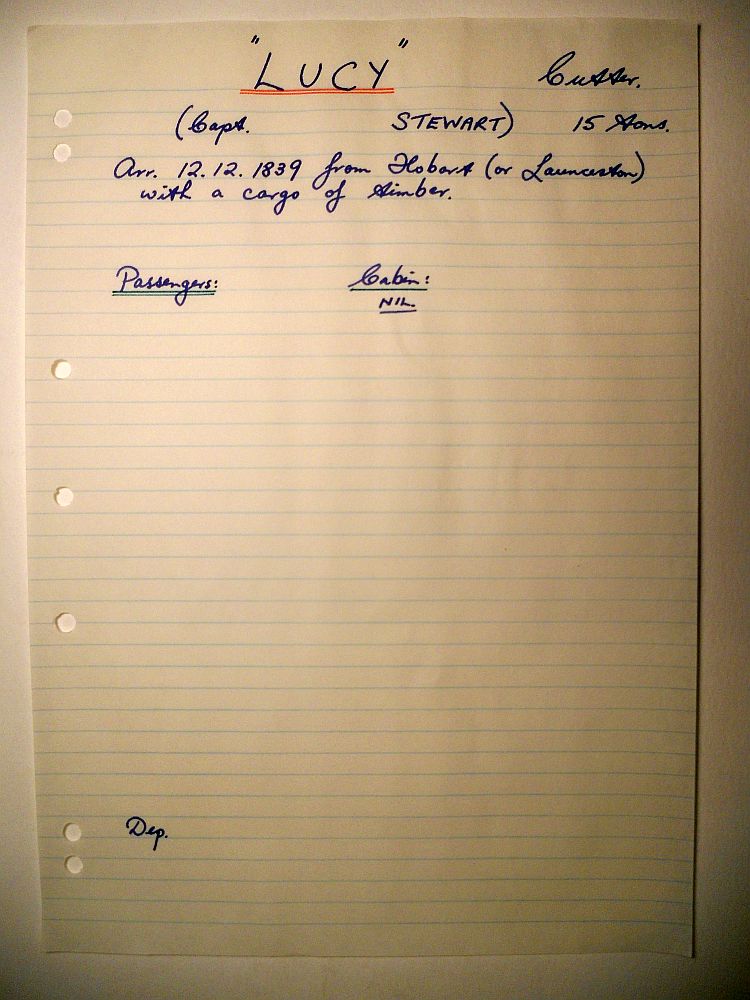 "LUCY" Cutter.
(Capt. STEWART) 15 tons.
Arr. 12.12.1839 from Hobart (or Launceston)
with a cargo of timber.
Passengers: Cabin:
NIL.
Dep.